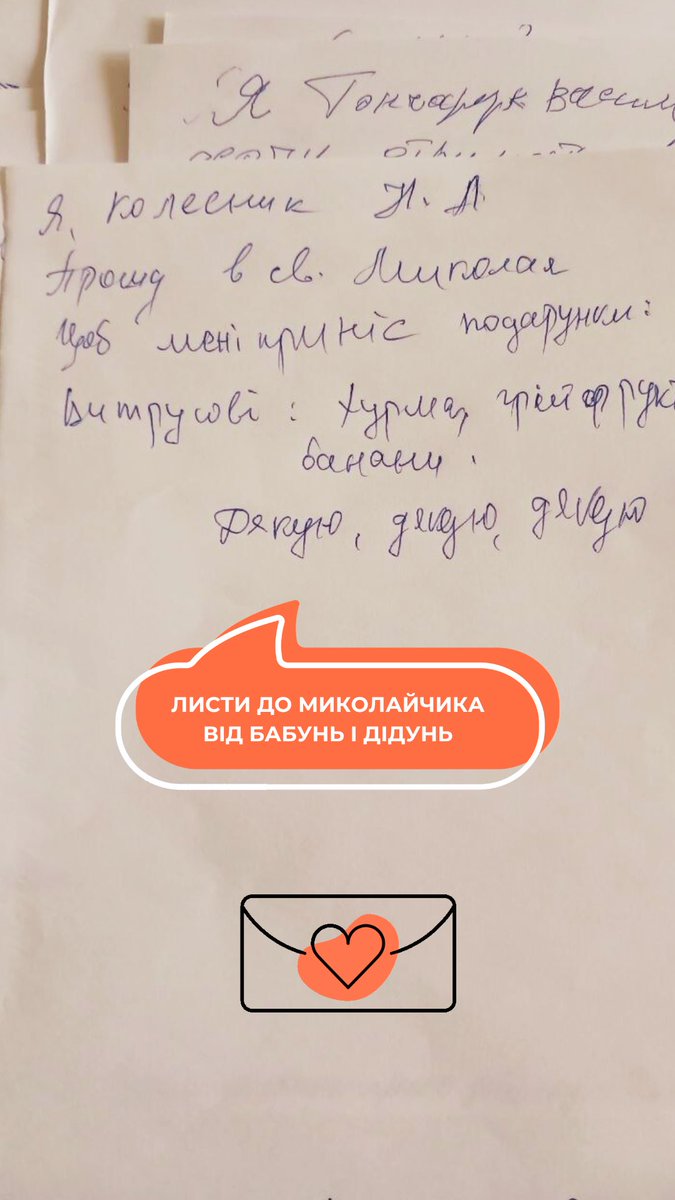 Я Гончарук Васил
Я, Колесник Н. А
Прошу в св. Миколая
щоб мені приніс подарунки:
Цитрусові: хурма, грейпфрукт
банани.
Дякую, дякую, дякую
ЛИСТИ ДО МИКОЛАЙЧИКА
ВІД БАБУНЬ І ДІДУНЬ